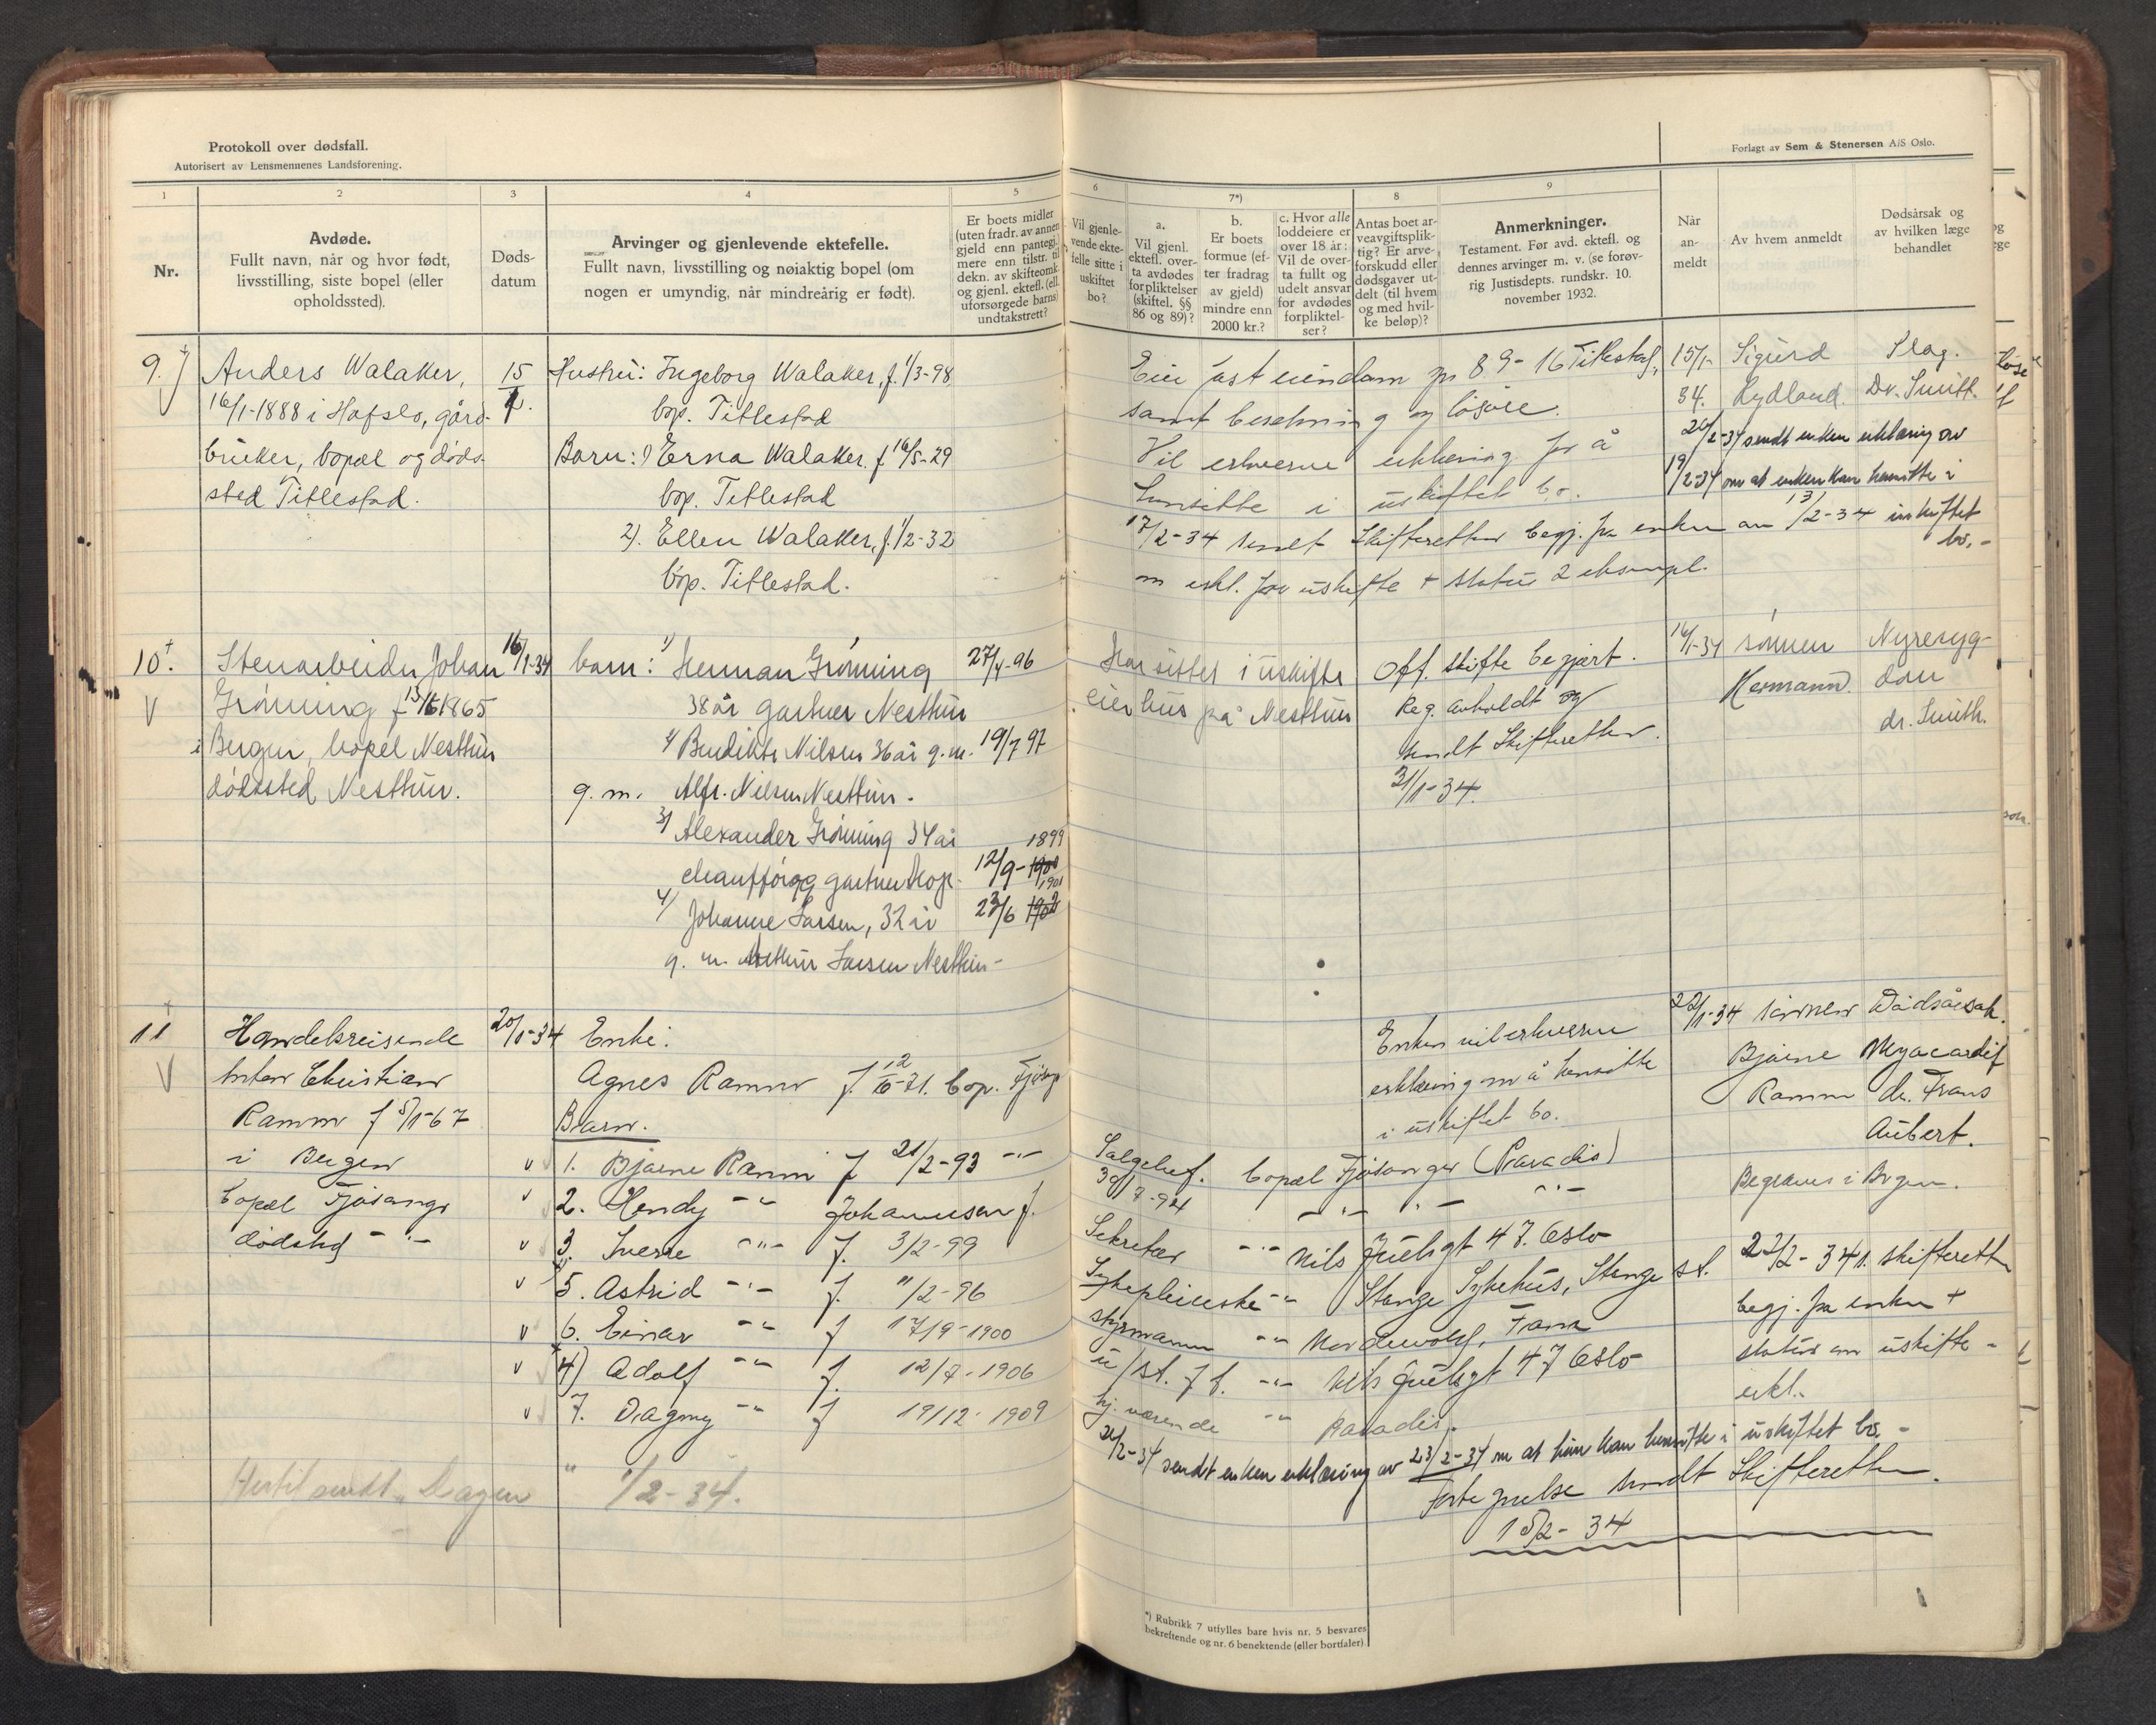 Protokoll over dødsfall.
Autorisert av Lensmennenes Landsforening.
Forlagt av Sem & Stenersen A/S Oslo.
1
2
3
4
5
6
7*)
8
9
Nr.
Avdøde.
Fullt navn, når og hvor født,
livsstilling, siste bopel (eller
opholdssted).
Døds-
datum
Arvinger og gjenlevende ektefelle.
Fullt navn, livsstilling og nøiaktig bopel (om
nogen er umyndig, når mindreårig er født).
Er boets midler
(uten fradr. av annen
gjeld enn pantegj.
mere enn tilstr. til
dekn. av skifteomk.
og gjenl. ektef. (ell.
uforsørgede barns)
undtakstrett?
Vil gjenle-
vende ekte-
felle sitte i
uskiftet
bo?
a.
Vil gjenl.
ektefl. over-
ta avdødes
forpliktelser
(skiftel. §§
86 og 89)?
b.
Er boets
formue (ef-
ter fradrag
av gjeld)
mindre enn
2000 kr.?
c. Hvor alle
loddeiere er
over 18 år:
Vil de over-
ta fullt og
udelt ansvar
for avdødes
forpliktel-
ser?
Antas boet ar-
veavgiftsplik-
tig? Er arve-
forskudd eller
dødsgaver ut-
delt (til hvem
og med hvil-
ke beløp)?
Anmerkninger.
Testament. Før avd. ektefl. og
dennes arvinger m. v. (se forøv-
rig Justisdepts. rundskr. 10.
november 1932.
Når
an-
meldt
Av hvem anmeldt
Dødsårsak og
av hvilken læge
behandlet
9.
Anders Walaker,
16/1-1888 i Hafslo, gård-
bruker, bopæl og døds-
sted Titlestad.
15
1.
Hustru: Ingeborg Walaker, f. 1/3-98
bop. Titlestad
Barn: 1) Erna Walaker. f 16/5-29
bop. Titlestad
2). Ellen Walaker, f. 1/2-32
bop. Titlestad.
Eier fast eiendom gr 89-16 Titlestad,
samt besetning og løsøre.
Vil erhverve erklæring for å
hensitte i uskiftet bo.
17/2-34 sendt Skifteretten begj. fra enken av 13/2-34
m erkl. for uskifte + status 2 eksempl.
15/1-
34.
Sigurd
Rydland.
Slag.
Dr. Smitt.
20/2-34 sendt enken erklæring av
19/2-34 om at enken kan hensitte i
uskiftet
bo.-
10.
Stenarbeider Johan
Grønning f 15/6 1865
i Bergen, bopel Nesttun
dødssted Nesttun.
16/1-34
barn: 1) Herman Grønning 27/4-96
38 år gartner Nesttun
Bendikte Nilsen 36 år g. m. 19/7 97
g. m. Alfr. Nilsen Nesttun.
3) Alexander Grønning 34 år 1899
chauffør og gartner bop. 12/9-1900
4) 1901
Johanne Larsen, 32 år 23/6 1902
g. m. Arthur Larsen Nesttun-
Har sittet i uskifte
eier hus på Nesttun
Off. skifte begjært.
Reg. avholdt og
sendt Skifteretten.
31/1-34.
16/1-34
sønnen
Hermann.
Nyresyg-
dom
dr. Smith.
11
Handelsreisende
Anton Christian
Ramm f 5/1-67
i Bergen
bopæl Fjøsanger
dødsted -"-
20/1-34
Enke:
Agnes Ramm f. 12/10-71. bop. Fjøsang
Barn.
1. Bjarne Ramm f 21/2-93 -"- Salgschef. bopæl Fjøsanger (Paradis)
2. Hendy -"- Johannesen f. 30/7-94 -"- -"-
3. Sverre -"- f. 3/2-99 Sekretær -"- Nils Juelsgt 47. Oslo
5. Astrid -"- f. "/2-96 Sykepleierske -"- Stange Sykehus, Stange st.
6. Einar -"- f 17/9-1900 styrmann -"- Nordewolf, Fana
4) Adolf -"- f. 12/7-1906 u/st. f f. -"- Nils Juelsgt 47 Oslo
7. Dagny -"- f 19/12-1909 hj. værende -"- Paradis.
Enken vil erhverve
erklæring m å hensitte
i uskiftet bo.
22/1-34
sønnen
Bjarne
Ramm
Dødsårsak.
Myocardit
dr. Frans
Aubert.
Begraves i Bergen.
22/2-34 s. skifteretten
begj. fra enken +
status om uskifte-
erkl.
26/2-34 sendt enken erklæring av 23/2-34 om at hun kan hensitte i uskiftet bo.-
Fortegnelse sendt Skifteretten.
15/2-34
Hertil sendt " Dagen " 1/2-34.
*) Rubrikk 7 utfylles bare hvis nr. 5 besvares
bekreftende og nr. 6 benektende (eller bortfaler)